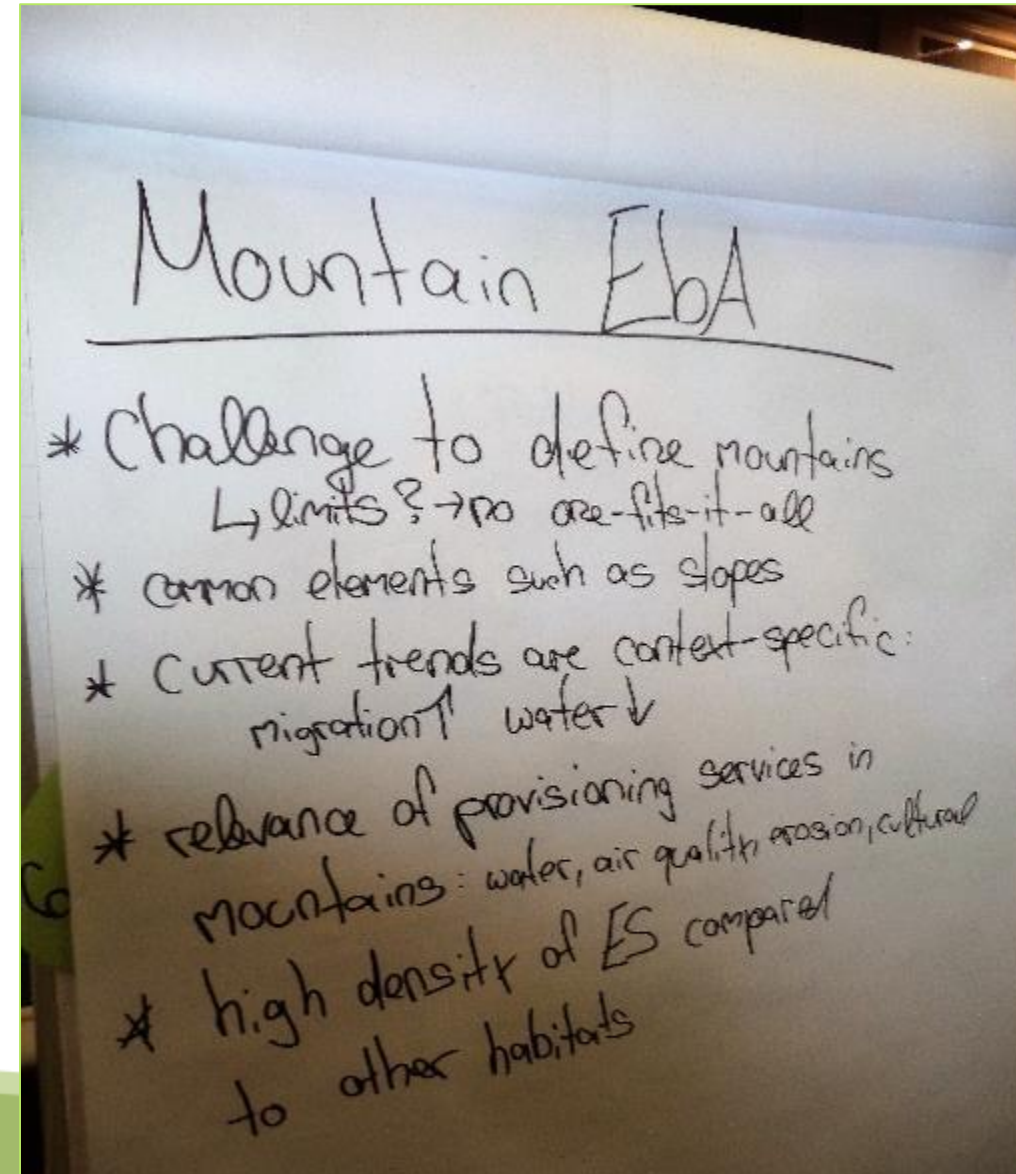 Mountain EbA
* Challenge to define mountains
↳ limits? → no one-fits-it-all
* common elements such as slopes
* current trends are context-specific:
migration↑ water↓
* relevance of provisioning services in
mountains: water, air quality, erosion, cultural
* high density of ES compared
to other habitats